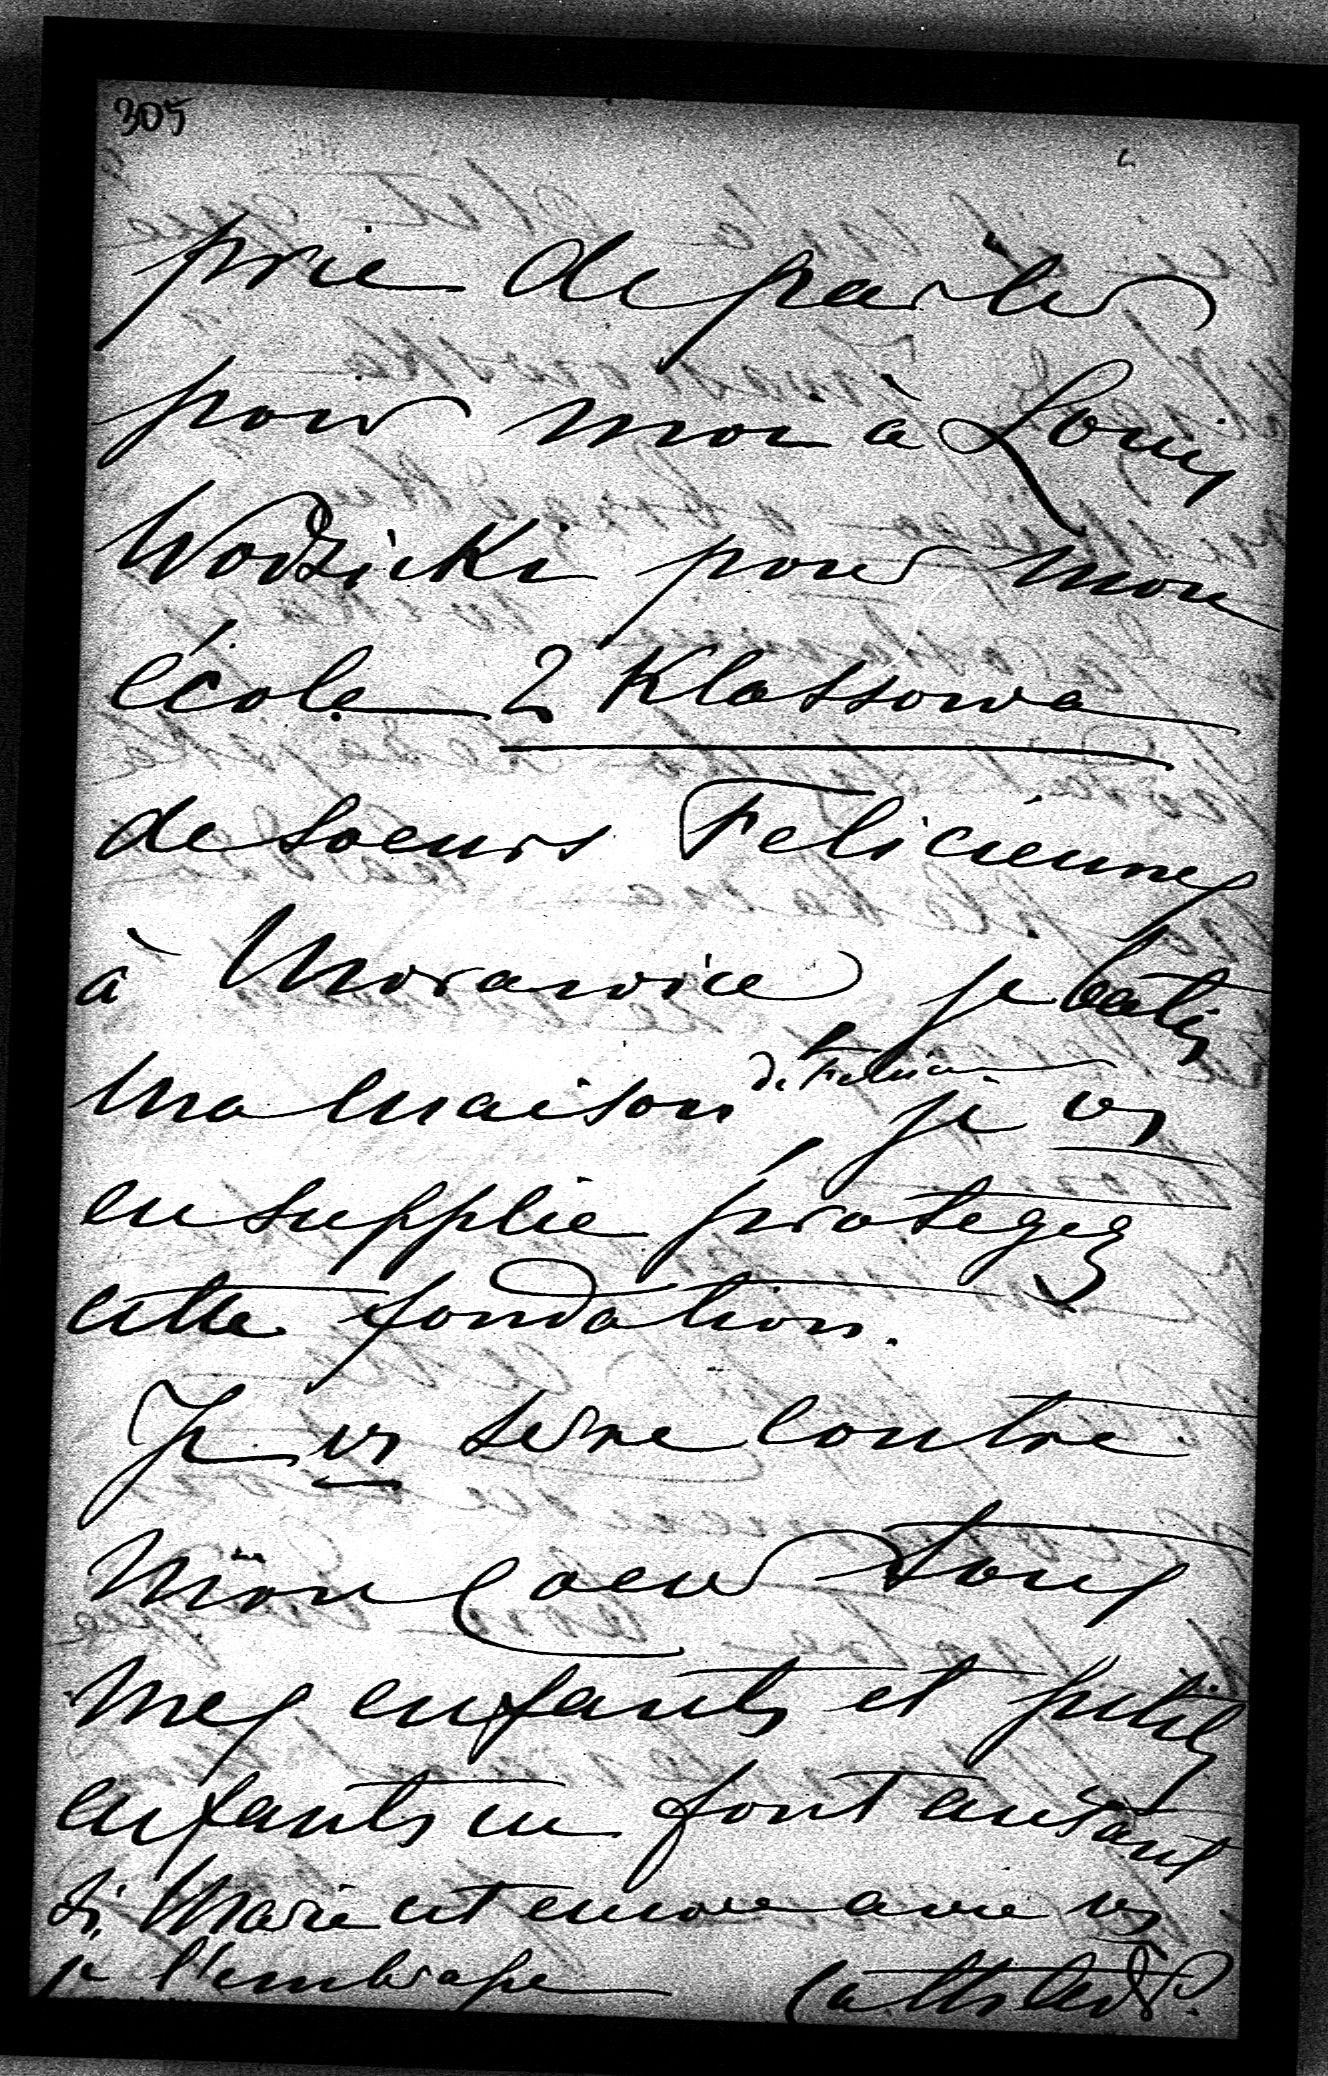 305
prie de parler
pour moi à Louis
Wodzicki pour mon
école 2 Klassowa
de soeurs Feliciennes
à Morawice je batis
ma maison de Felicia je vs
en supplie protegez
cette fondation.
Je vs serre contre
mon Coeur tous
mes enfants et petits
enfants en font autant
si Marie est encore avec vs
je l'embrasse